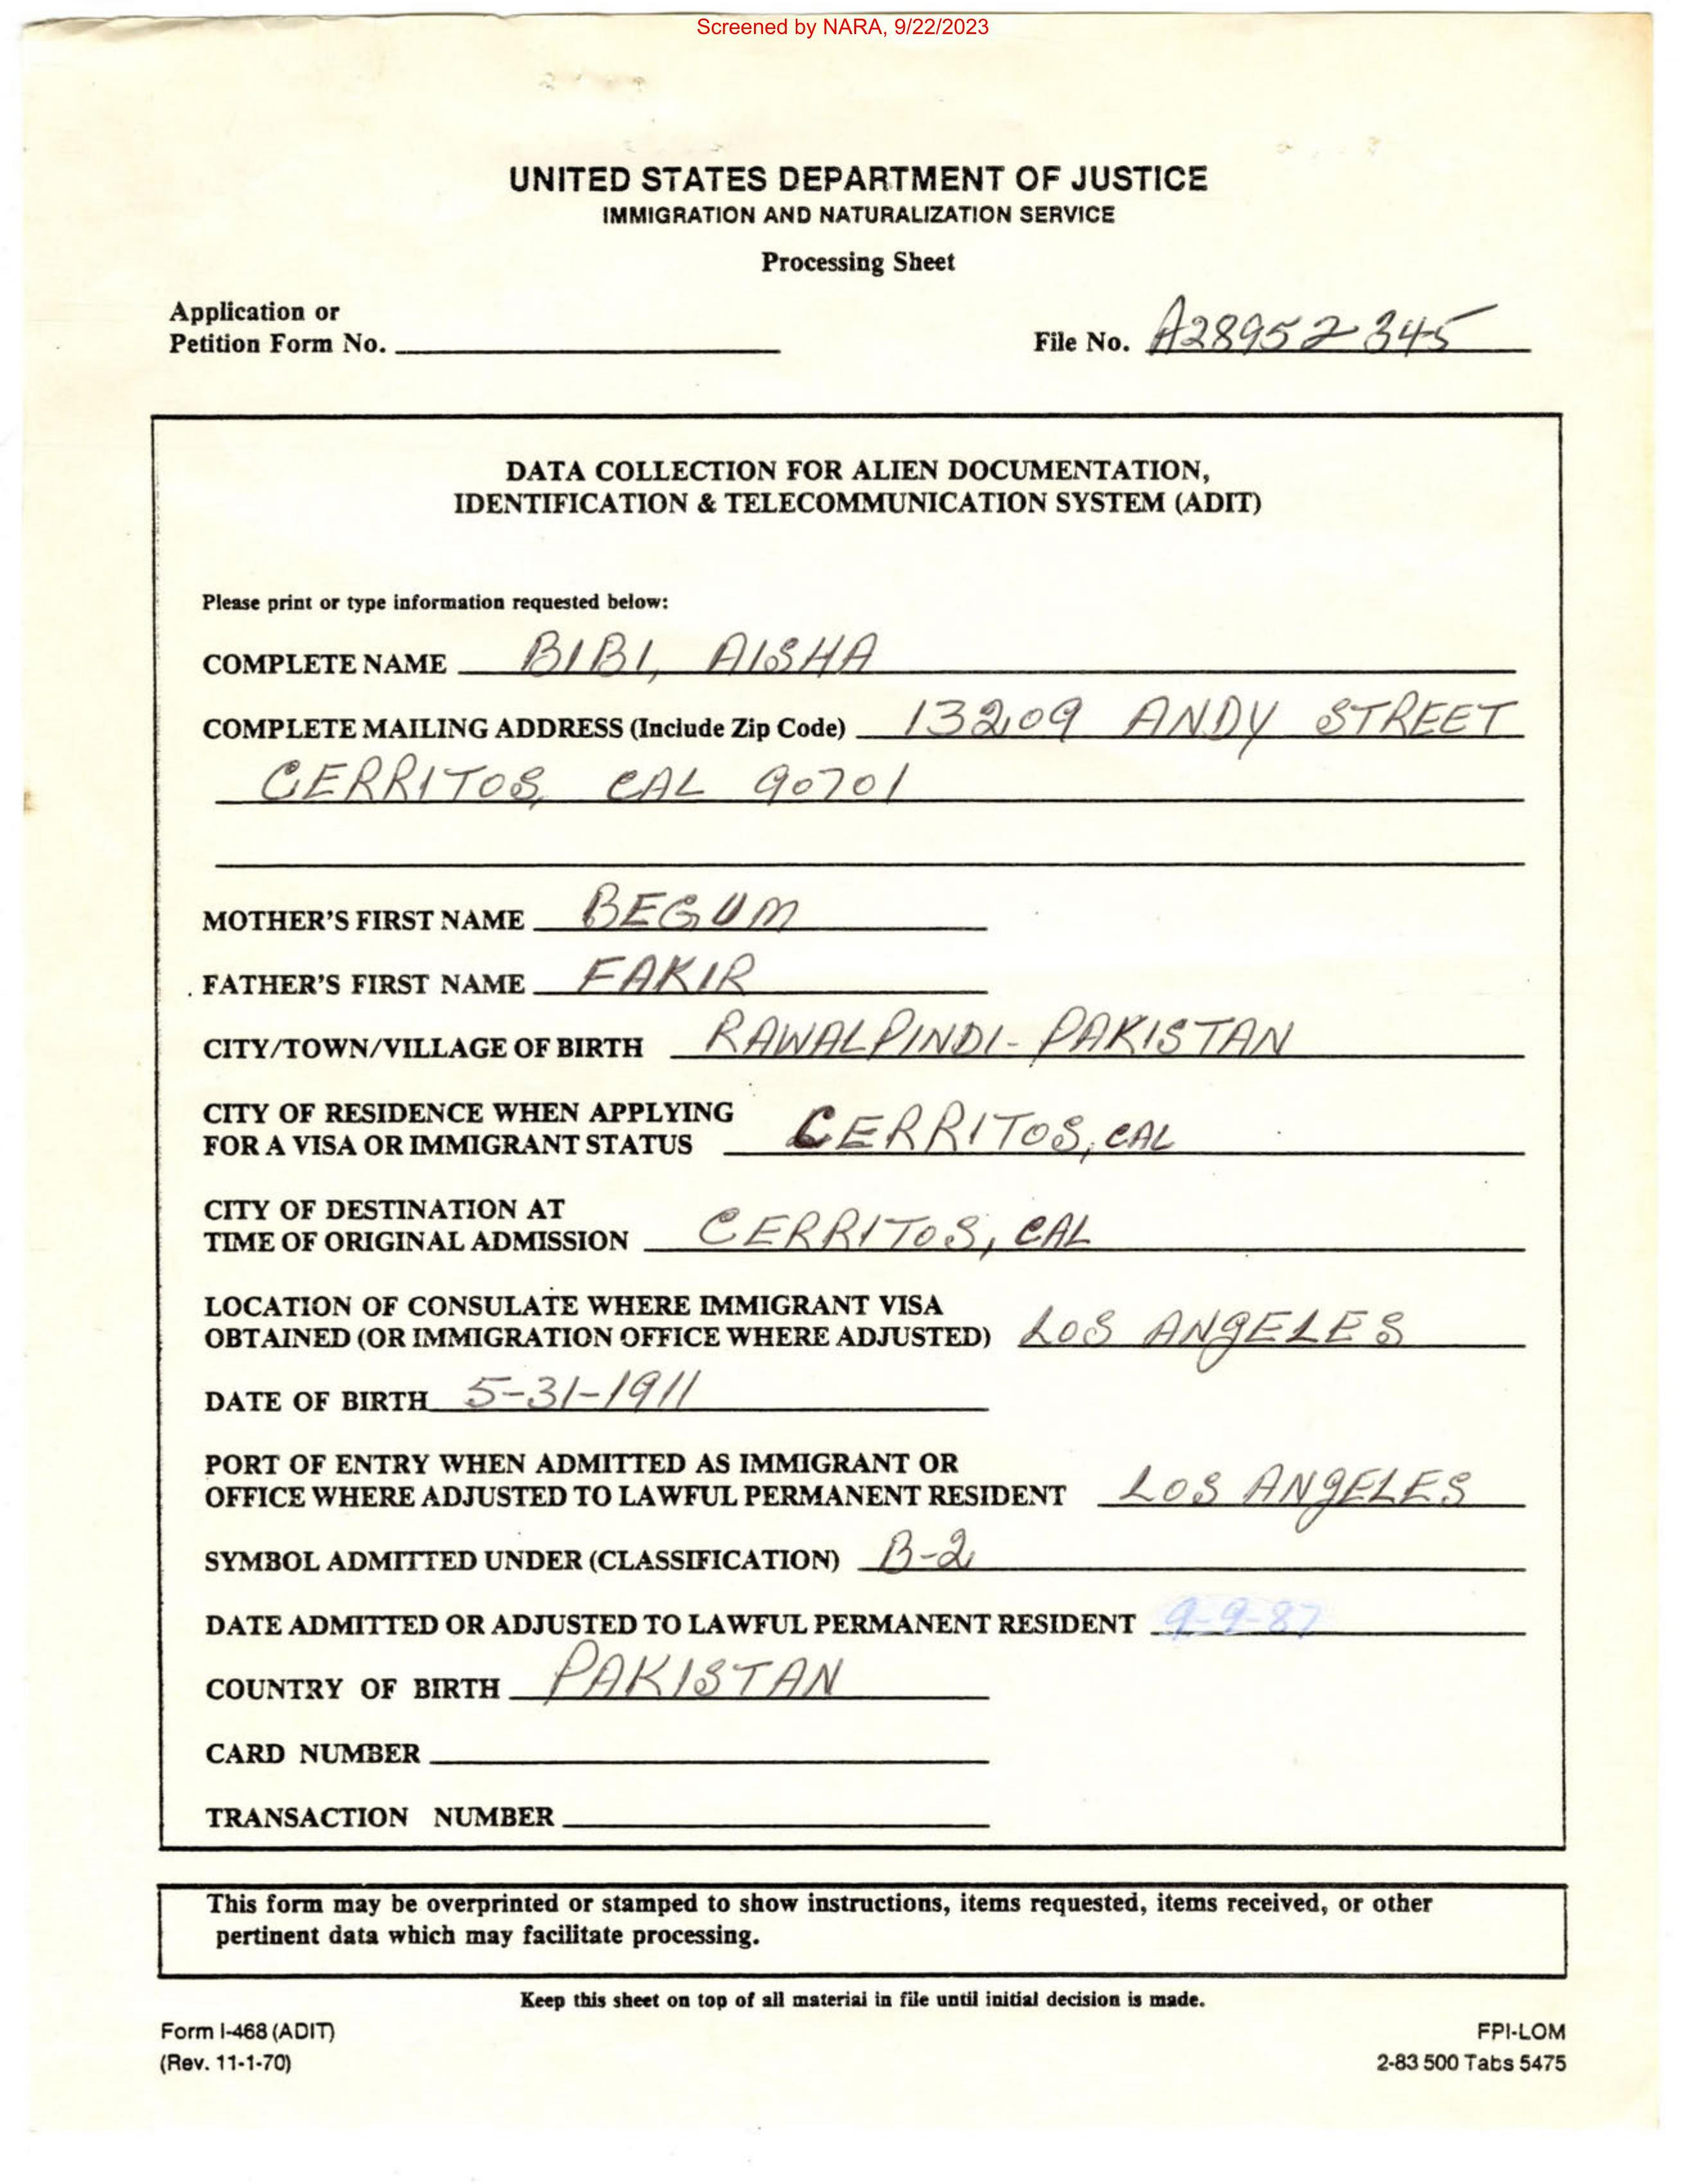 Screened by NARA, 9/22/2023
UNITED STATES DEPARTMENT OF JUSTICE
IMMIGRATION AND NATURALIZATION SERVICE
Processing Sheet
Application or
Petition Form No.
File No. A28952345
DATA COLLECTION FOR ALIEN DOCUMENTATION,
IDENTIFICATION & TELECOMMUNICATION SYSTEM (ADIT)
Please print or type information requested below:
COMPLETE NAME BIBI, AISHA
COMPLETE MAILING ADDRESS (Include Zip Code) 13209 ANDY STREET
CERRITOS, CAL 90701
MOTHER'S FIRST NAME BEGUM
FATHER'S FIRST NAME FAKIR
CITY/TOWN/VILLAGE OF BIRTH RAWALPINDI - PAKISTAN
CITY OF RESIDENCE WHEN APPLYING
FOR A VISA OR IMMIGRANT STATUS CERRITOS, CAL
CITY OF DESTINATION AT
TIME OF ORIGINAL ADMISSION CERRITOS, CAL
LOCATION OF CONSULATE WHERE IMMIGRANT VISA
OBTAINED (OR IMMIGRATION OFFICE WHERE ADJUSTED) LOS ANGELES
DATE OF BIRTH 5-31-1911
PORT OF ENTRY WHEN ADMITTED AS IMMIGRANT OR
OFFICE WHERE ADJUSTED TO LAWFUL PERMANENT RESIDENT LOS ANGELES
SYMBOL ADMITTED UNDER (CLASSIFICATION) B-2
DATE ADMITTED OR ADJUSTED TO LAWFUL PERMANENT RESIDENT 9-9-87
COUNTRY OF BIRTH PAKISTAN
CARD NUMBER
TRANSACTION NUMBER
This form may be overprinted or stamped to show instructions, items requested, items received, or other
pertinent data which may facilitate processing.
Keep this sheet on top of all material in file until initial decision is made.
Form I-468 (ADIT)
(Rev. 11-1-70)
FPI-LOM
2-83 500 Tabs 5475